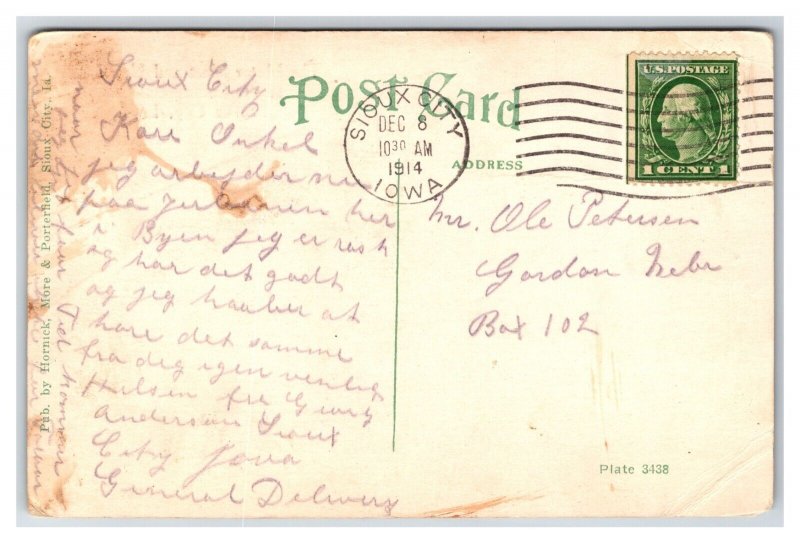 Post Card
ADDRESS
SIOUX CITY
DEC 8
10 30 AM
1914
IOWA
U.S. POSTAGE
1 CENT 1
Sioux City
Kære Onkel
jeg arbejder nu
paa Jernbanen her
i Byen jeg er rask
og har det godt
og jeg haaber at
høre det samme
fra dig igen venlig
Hilsen fra
Anderson Sioux
City Iova
General Delivery
naar
jeg faar Tid kommer
Mr. Ole Petersen
Gordon Nebr
Box 102
Pub. by Hornick, More & Porterfield, Sioux City, Ia.
Plate 3438